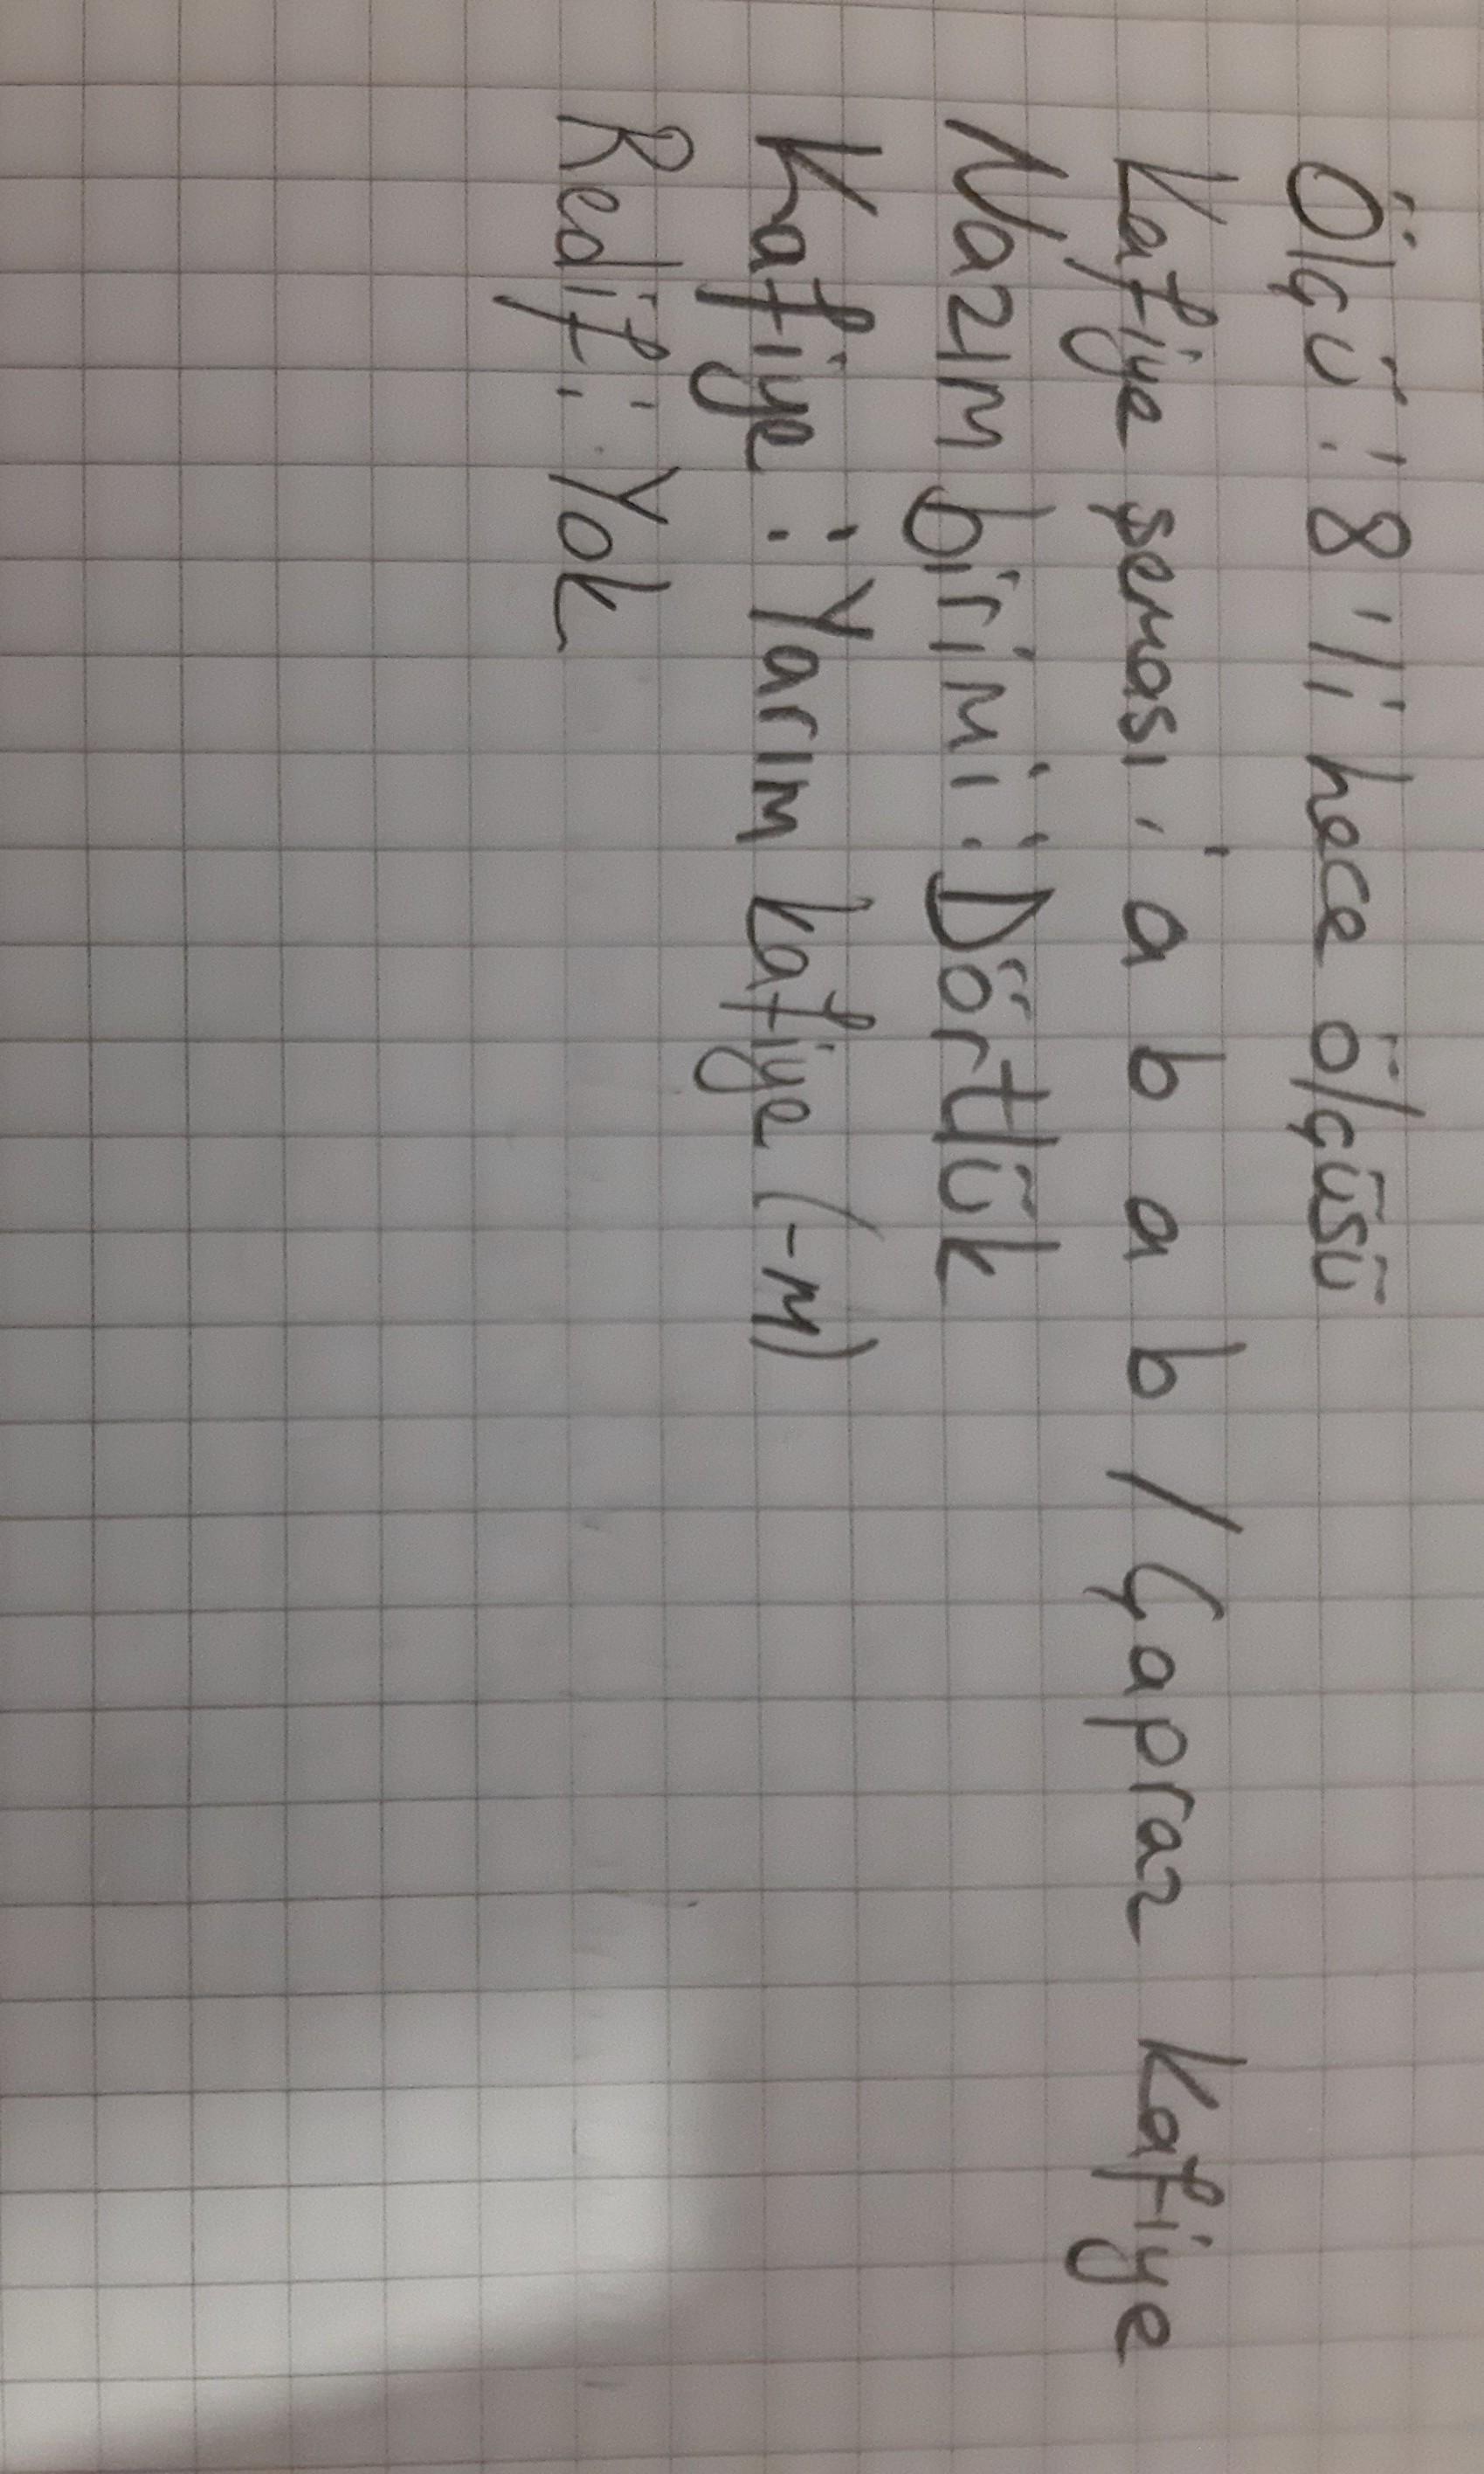 Ölçü : 8'li hece ölçüsü
Kafiye şeması : a b a b / Çapraz Kafiye
Nazım birimi : Dörtlük
Kafiye : Yarım kafiye (-m)
Redif : Yok